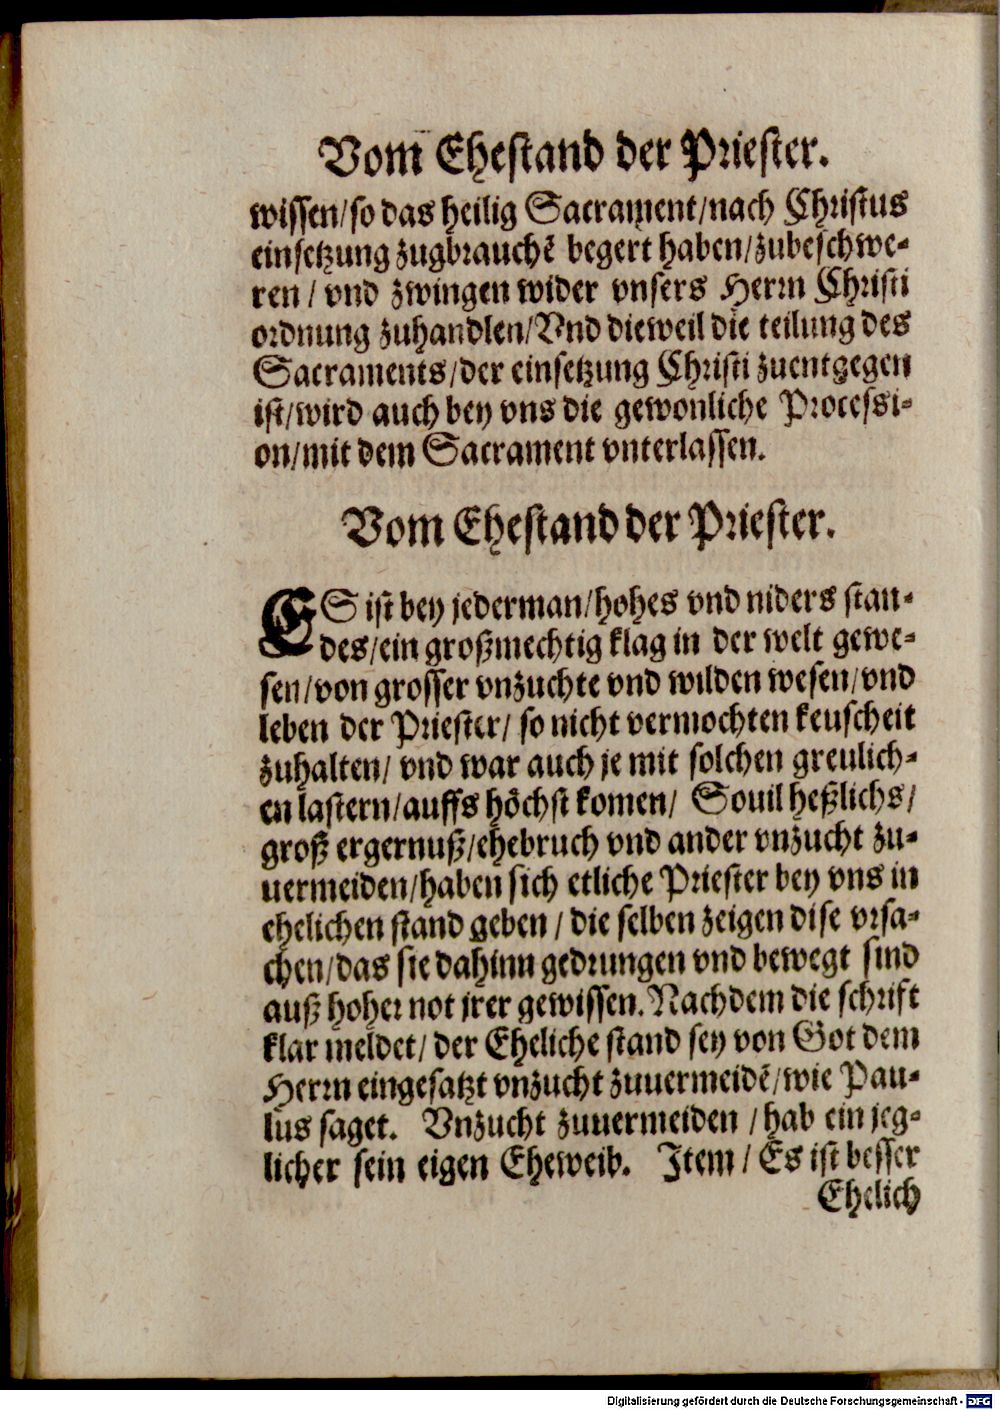 Vom Ehestand der Priester.
wissen/so das heilig Sacrament/nach Christus
einsetzung zugbrauchẽ begert haben/zubeschwe-
ren / vnd zwingen wider vnsers Herrn Christi
ordnung zuhandlen/Vnd dieweil die teilung des
Sacraments/der einsetzung Christi zuentgegen
ist/wird auch bey vns die gewonliche Processi-
on/mit dem Sacrament vnterlassen.
Vom Ehestand der Priester.
ES ist bey jederman/hohes vnd niders stan-
des/ein großmechtig klag in der welt gewe-
sen/von grosser vnzuchte vnd wilden wesen/vnd
leben der Priester/ so nicht vermochten keuscheit
zuhalten/ vnd war auch je mit solchen greulich-
en lastern/auffs höchst komen/ Souil heßlichs/
groß ergernuß/ehebruch vnd ander vnzucht zu-
uermeiden/haben sich etliche Priester bey vns in
ehelichen stand geben / die selben zeigen dise vrsa-
chen/das sie dahinn gedrungen vnd bewegt sind
auß hoher not jrer gewissen. Nachdem die schrift
klar meldet/ der Eheliche stand sey von Got dem
Herrn eingesatzt vnzucht zuuermeidẽ/wie Pau-
lus saget. Vnzucht zuuermeiden / hab ein jeg-
licher sein eigen Eheweib. Item / Es ist besser
Ehelich
Digitalisierung gefördert durch die Deutsche Forschungsgemeinschaft - DFG